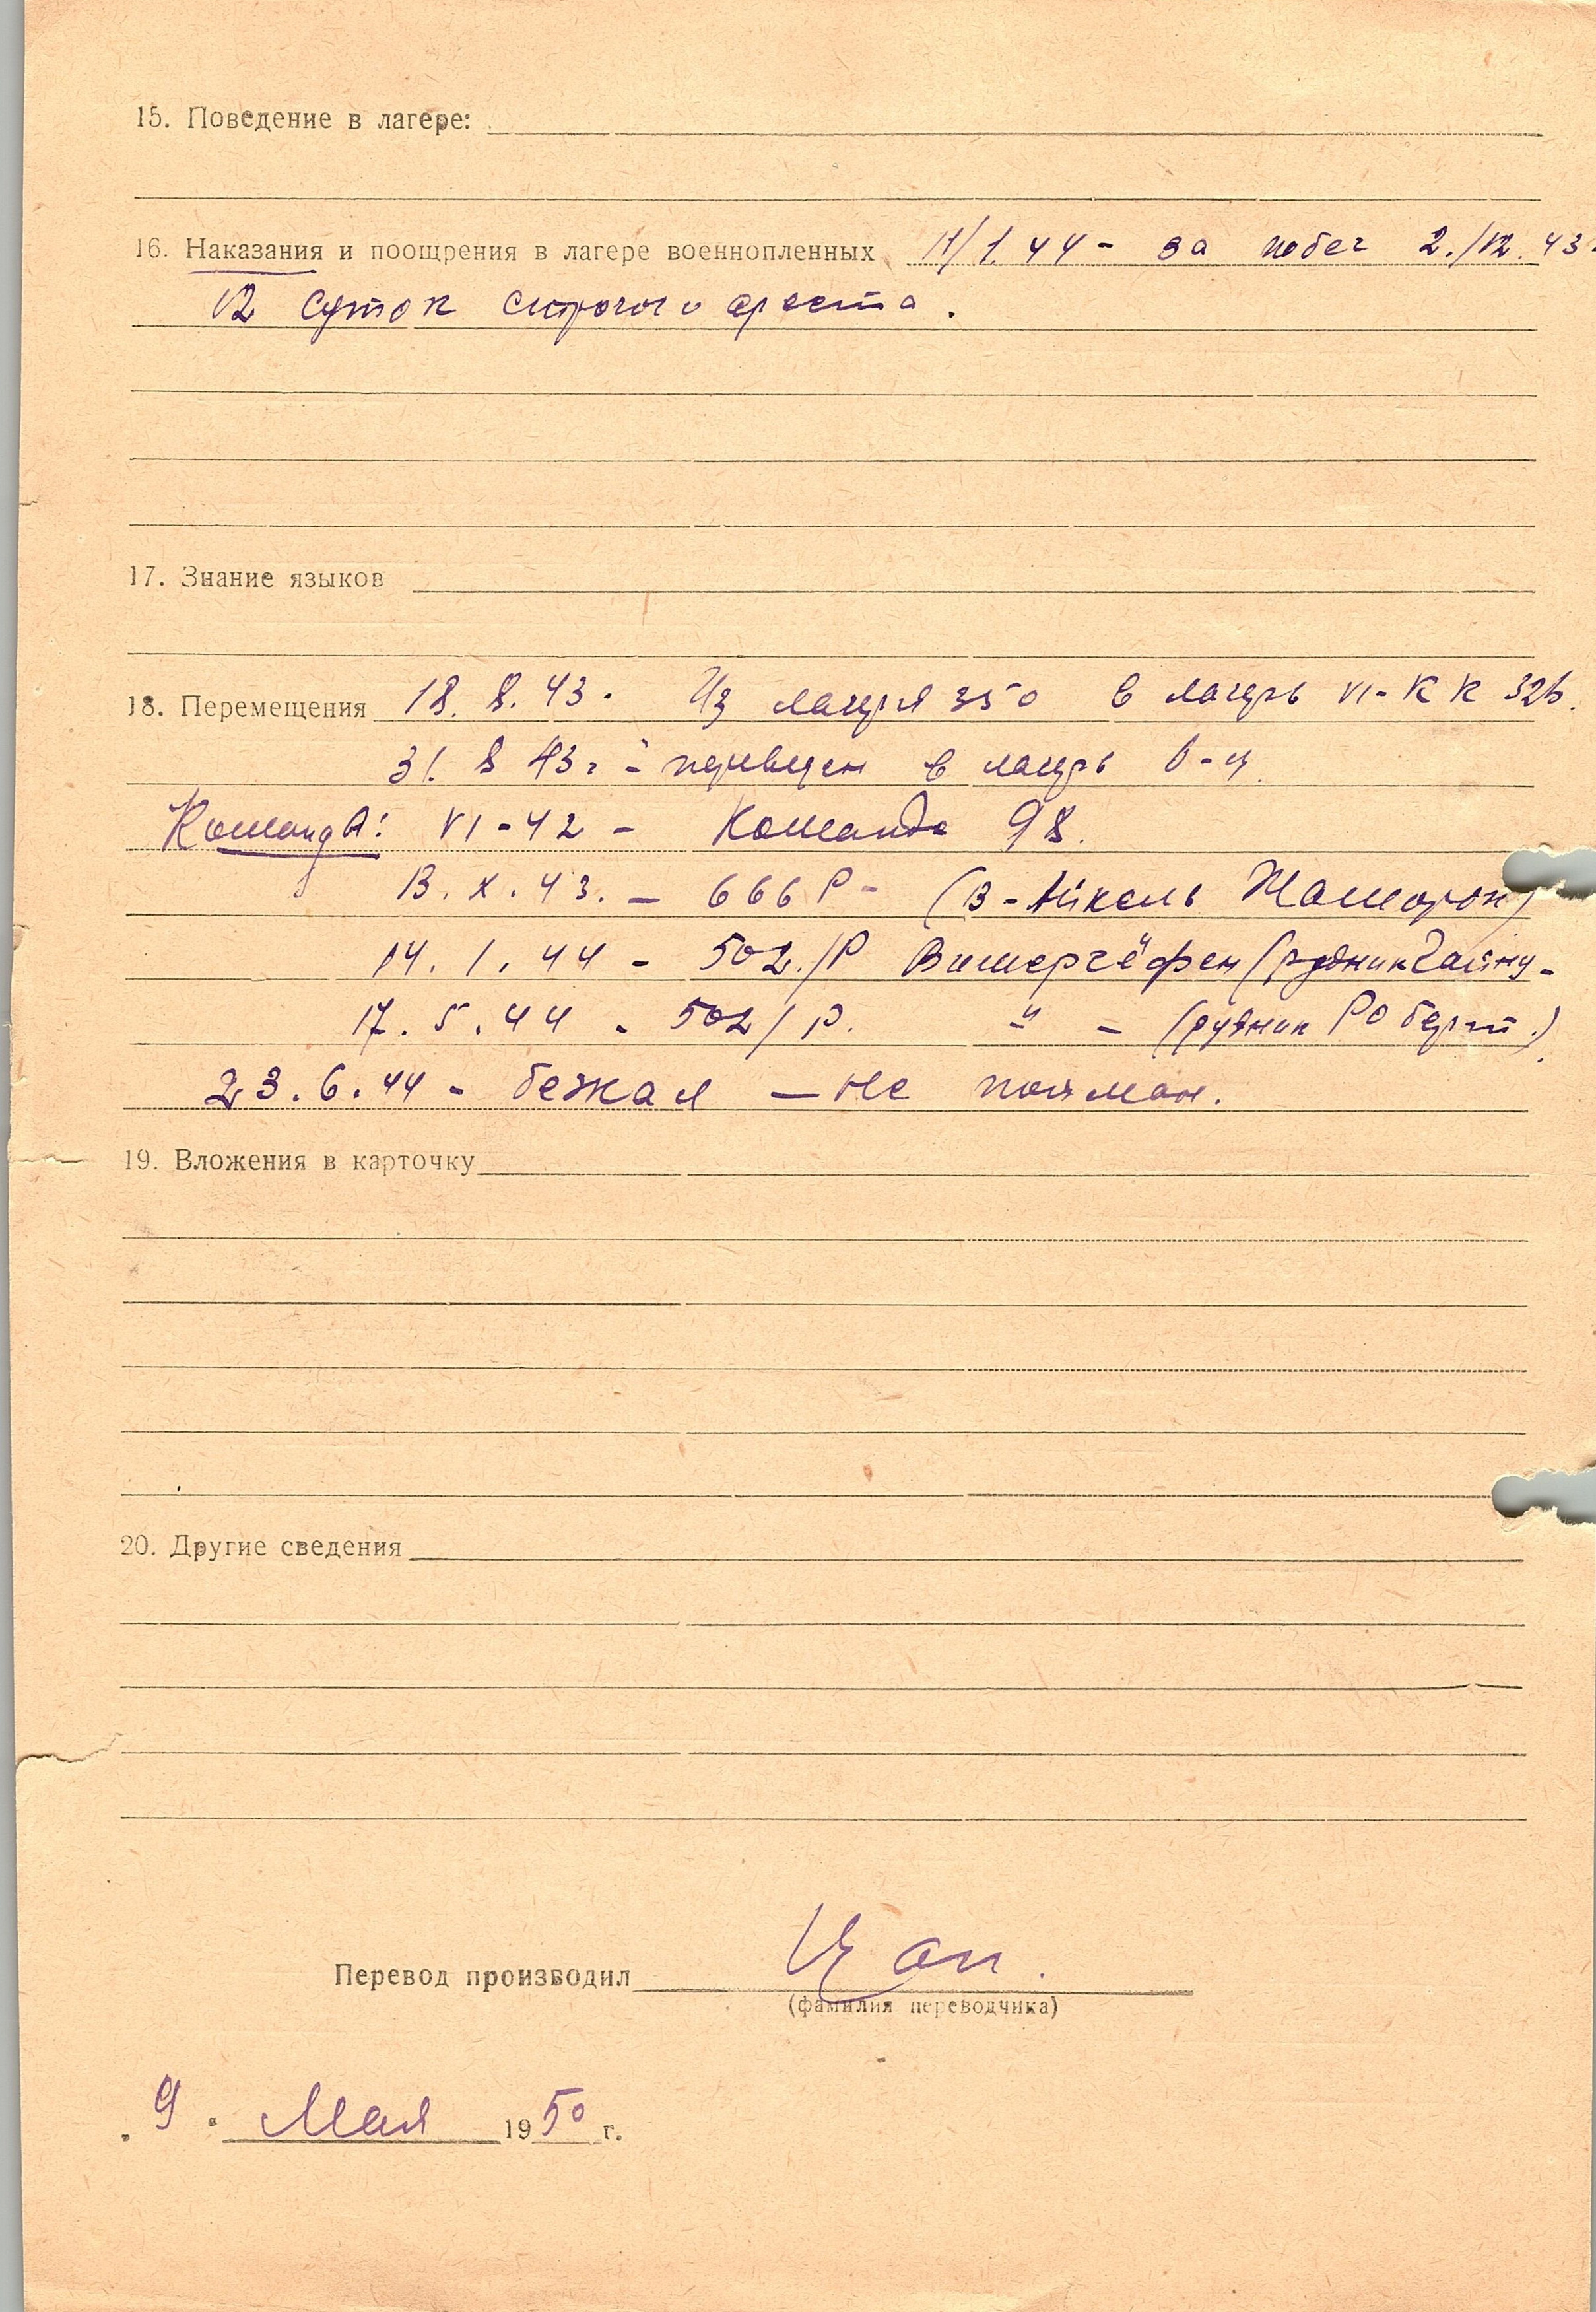 15. Поведение в лагере:
16. Наказания и поощрения в лагере военнопленных 11/1.44 - за побег 2./12.43
12 суток строгого ареста.
17. Знание языков
18. Перемещения 18.8.43. Из лагеря 350 в лагерь VI-К К 326.
31.8 43г - переведен в лагерь
Команды: VI-42 - Команда 98.
13.X.43. - 666 Р - (В-Айкель
14.1.44 - 502./Р (рудник
17.5.44 - 502/Р. " - (рудник Роберт.)
23.6.44 - бежал - не пойман.
19. Вложения в карточку
20. Другие сведения
Перевод производил
(фамилия переводчика)
9. Мая 1950 г.